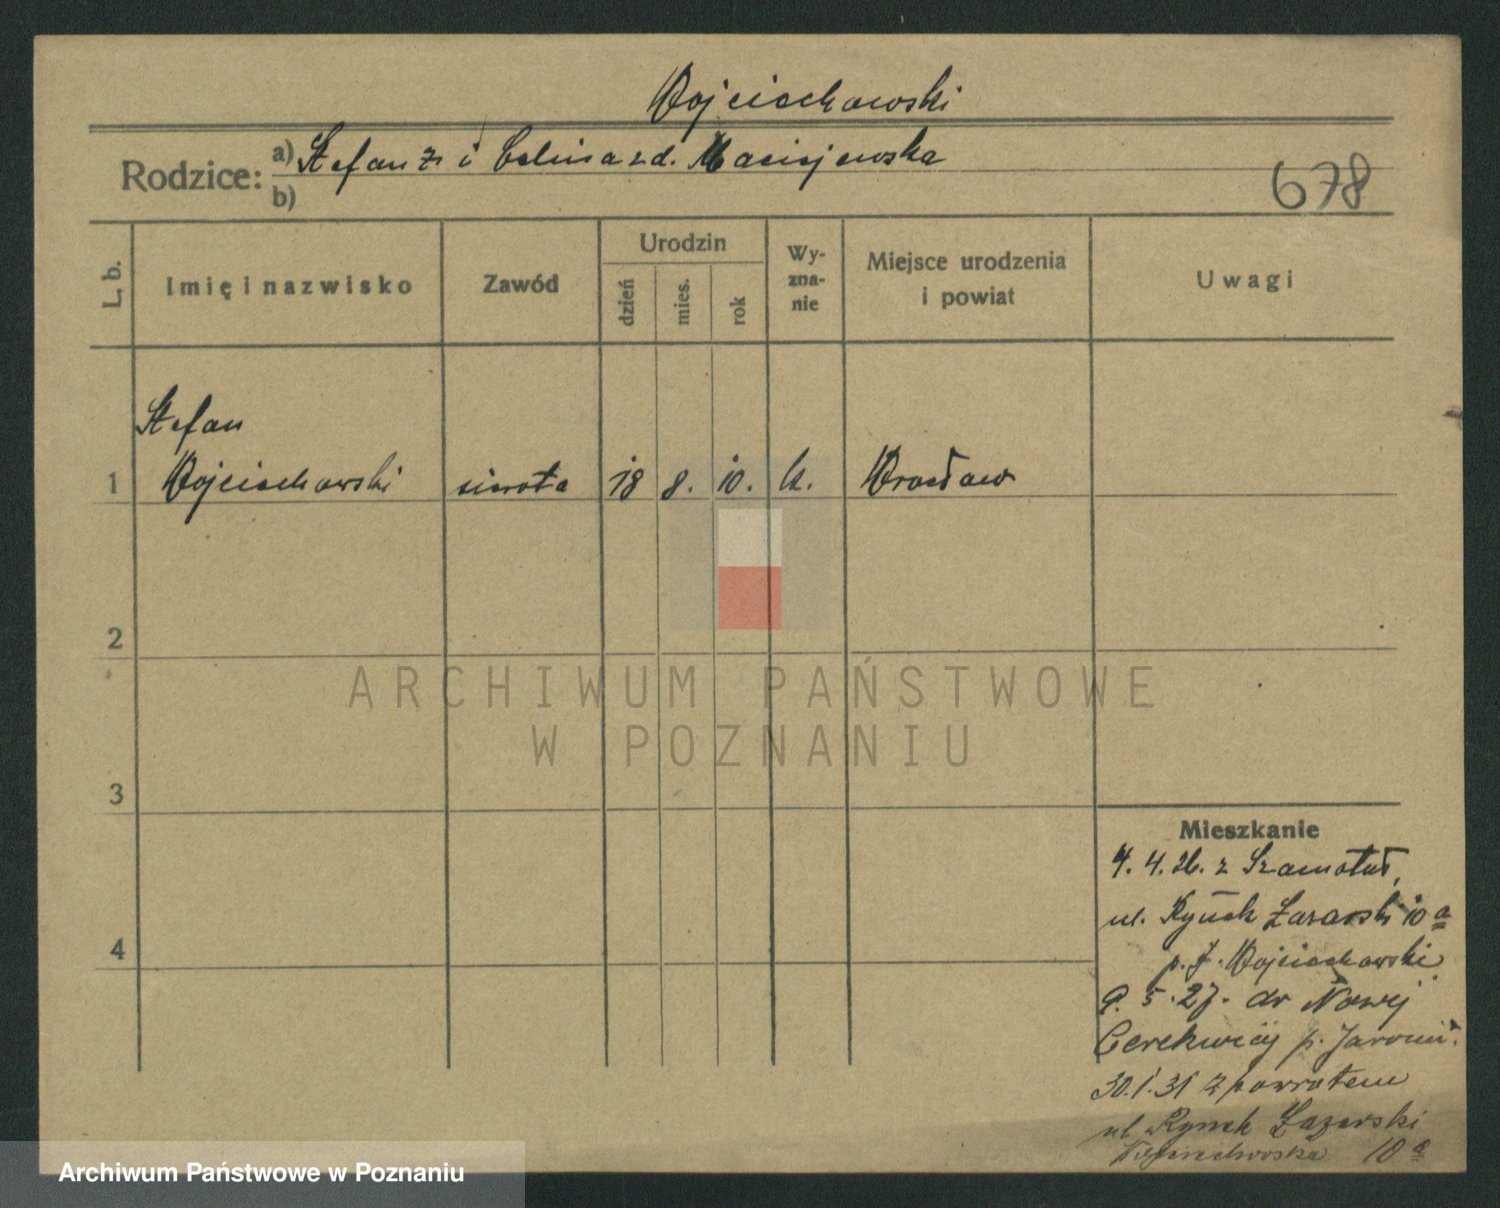 Wojciechowski
Rodzice: a) Stefan i Celina zd. Maciejewska
b)
678
L. b.
Imię i nazwisko
Zawód
Urodzin
dzień
mies.
rok
Wy-
zna-
nie
Miejsce urodzenia
i powiat
Uwagi
Stefan
1 Wojciechowski sierota 18 8. 10. k. Wrocław
2
3
4
Mieszkanie
4. 4. 26. z Szamotuł,
ul. Rynek Łazarski 10 a
p. J. Wojciechowski
9. 5. 27. do Nowej
Cerekwicy p.
30.1.31 z powrotem
ul. Rynek Łazarski
Wojciechowska 10 a
ARCHIWUM PAŃSTWOWE
W POZNANIU
Archiwum Państwowe w Poznaniu